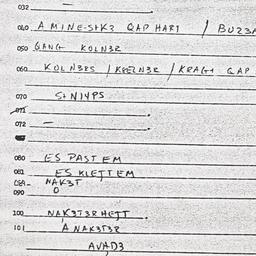 032 —
040 AMINE-S+K2 QAP HART /
050 GANG KOLN3R
060 KOLN3RS / / KRAG+ QAP
070 S+N14PS
071
072 —
080 ES PAST EM
081 ES KLETT EM
NAK3T
090 O
100 NAK3T3RHEJT
101 A NAK3T3R
AVAD3